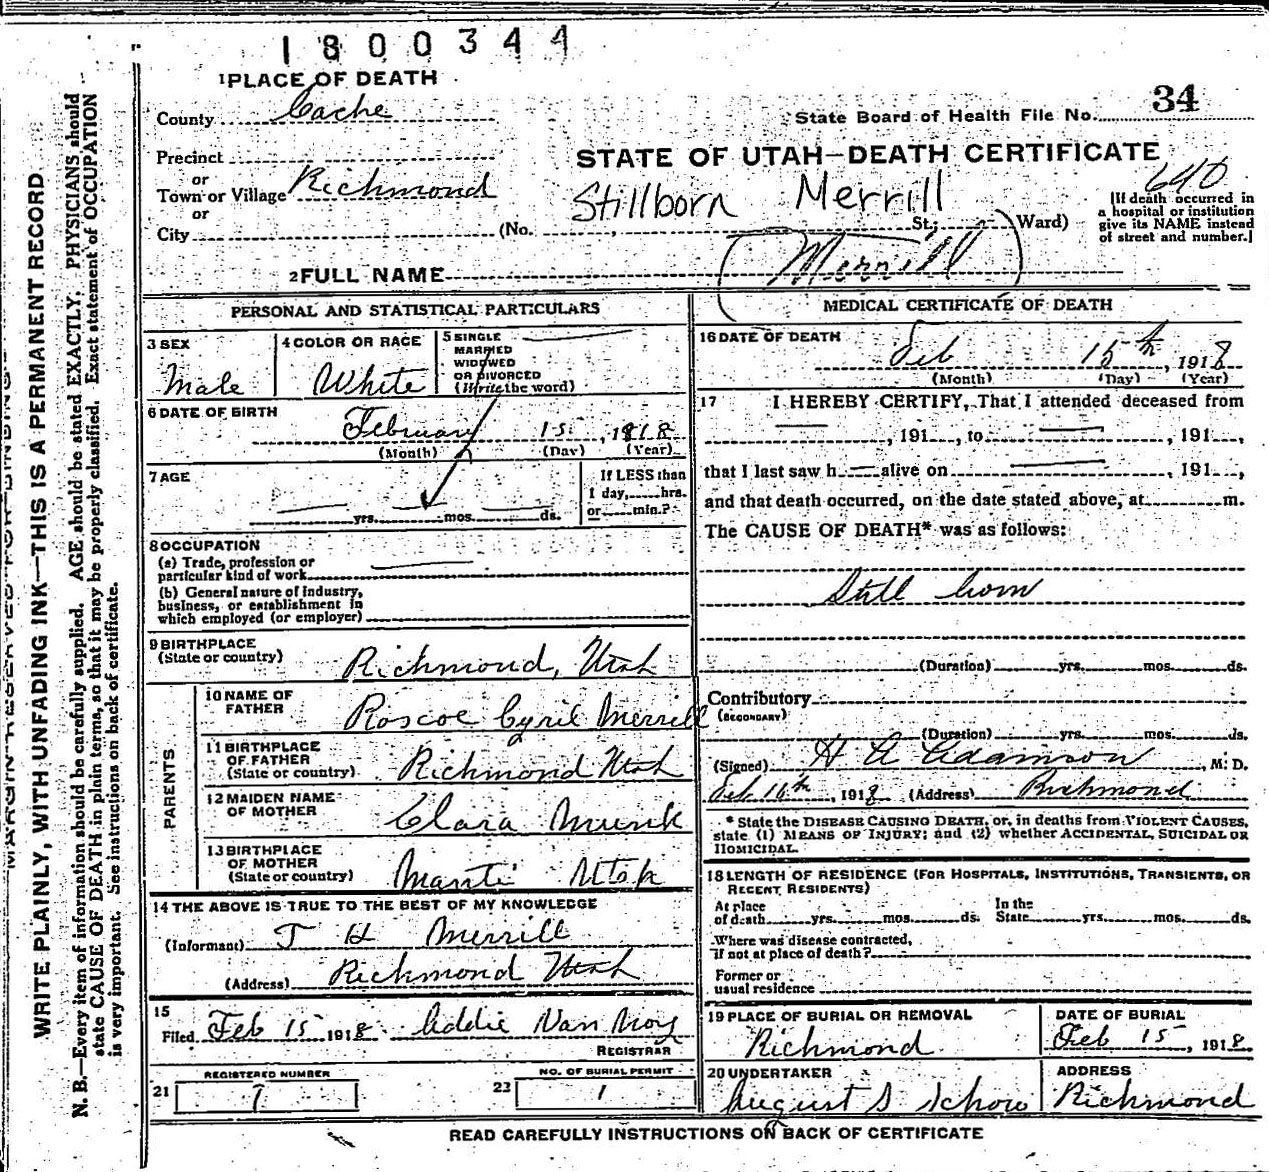 1800344
1 PLACE OF DEATH
34
County Cache
State Board of Health File No.
Precinct
STATE OF UTAH—DEATH CERTIFICATE
or
Town or Village Richmond
Stillborn Merrill
640
or
City (No. St.; Ward)
[If death occurred in
a hospital or institution
give its NAME instead
of street and number.]
2 FULL NAME (Merrill)
PERSONAL AND STATISTICAL PARTICULARS
3 SEX
Male
4 COLOR OR RACE
White
5 SINGLE
MARRIED
WIDOWED
OR DIVORCED
(Write the word)
6 DATE OF BIRTH
February 15, 1918
(Month) (Day) (Year)
7 AGE
yrs. mos. ds.
If LESS than
1 day, hrs.
or min.?
8 OCCUPATION
(a) Trade, profession or
particular kind of work
(b) General nature of Industry,
business, or establishment in
which employed (or employer)
9 BIRTHPLACE
(State or country) Richmond, Utah
PARENTS
10 NAME OF
FATHER Roscoe Cyril Merrill
11 BIRTHPLACE
OF FATHER
(State or country) Richmond Utah
12 MAIDEN NAME
OF MOTHER Clara Munk
13 BIRTHPLACE
OF MOTHER
(State or country) Manti Utah
14 THE ABOVE IS TRUE TO THE BEST OF MY KNOWLEDGE
(Informant) T H Merrill
(Address) Richmond Utah
15
Filed Feb 15 1918 Addie Van Noy
REGISTRAR
REGISTERED NUMBER
21 7
NO. OF BURIAL PERMIT
22 1
MEDICAL CERTIFICATE OF DEATH
16 DATE OF DEATH
Feb 15th, 1918
(Month) (Day) (Year)
17 I HEREBY CERTIFY, That I attended deceased from
, 191 , to , 191 ,
that I last saw h alive on , 191 ,
and that death occurred, on the date stated above, at m.
The CAUSE OF DEATH* was as follows:
Still born
(Duration) yrs. mos. ds.
Contributory
(SECONDARY)
(Duration) yrs. mos. ds.
(Signed) H A Adamson, M. D.
Feb 16th, 1918 (Address) Richmond
* State the DISEASE CAUSING DEATH, or, in deaths from VIOLENT CAUSES,
state (1) MEANS OF INJURY; and (2) whether ACCIDENTAL, SUICIDAL OR
HOMICIDAL.
18 LENGTH OF RESIDENCE (FOR HOSPITALS, INSTITUTIONS, TRANSIENTS, OR
RECENT RESIDENTS)
At place
of death yrs. mos. ds.
In the
State yrs. mos. ds.
Where was disease contracted,
if not at place of death?
Former or
usual residence
19 PLACE OF BURIAL OR REMOVAL
Richmond
DATE OF BURIAL
Feb 15, 1918
20 UNDERTAKER
August S Schow
ADDRESS
Richmond
READ CAREFULLY INSTRUCTIONS ON BACK OF CERTIFICATE
WRITE PLAINLY, WITH UNFADING INK—THIS IS A PERMANENT RECORD
N. B.—Every item of information should be carefully supplied. AGE should be stated EXACTLY. PHYSICIANS should
state CAUSE OF DEATH in plain terms, so that it may be properly classified. Exact statement of OCCUPATION
is very important. See instructions on back of certificate.